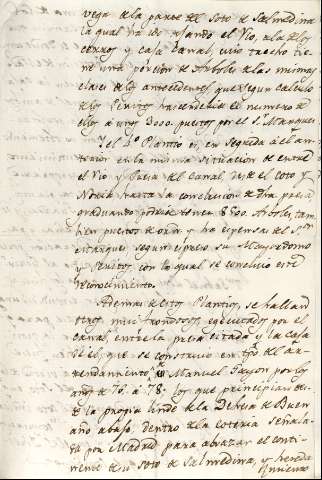 vega de la parte del Soto de Salmedina
la qual va de       el Rio, a la de los
cerros y casa Canal, cuio trecho tie-
ne una porcion de Arboles de las mismas
clases de los antecedentes que segun calculo
de los Peritos hacendería el numero de
ellos a unos 3000. puestos por el Sr. Marques
Y el 3.º Plantio es, en seguida a el an-
terior en la misma situacion de entre el
el Rio y Presa del Canal, desde el Coto y
Noria hasta la conclusion de dha presa
graduando podran tener 8500. Arboles, tam-
bien puestos de orden y ha expensas del Sr.
Marques segun expreso su Mayordomo
y Peritos con lo qual se concluio este
reconocimiento.
Ademas de estos Plantios, se hallan
otros mui frondosos, egecutados por el
Canal, entre la presa citada y la casa
de él, que se construio en tpo del ar-
rendamiento de Manuel Faxon por los
años de 76. a 78. los que principian des-
de la propia linde de la Dehesa de Buen
año abajo, dentro de la cotería señala-
da por Madrid para abrazar el conti-
nente de su Soto de Salmedina, y hereda